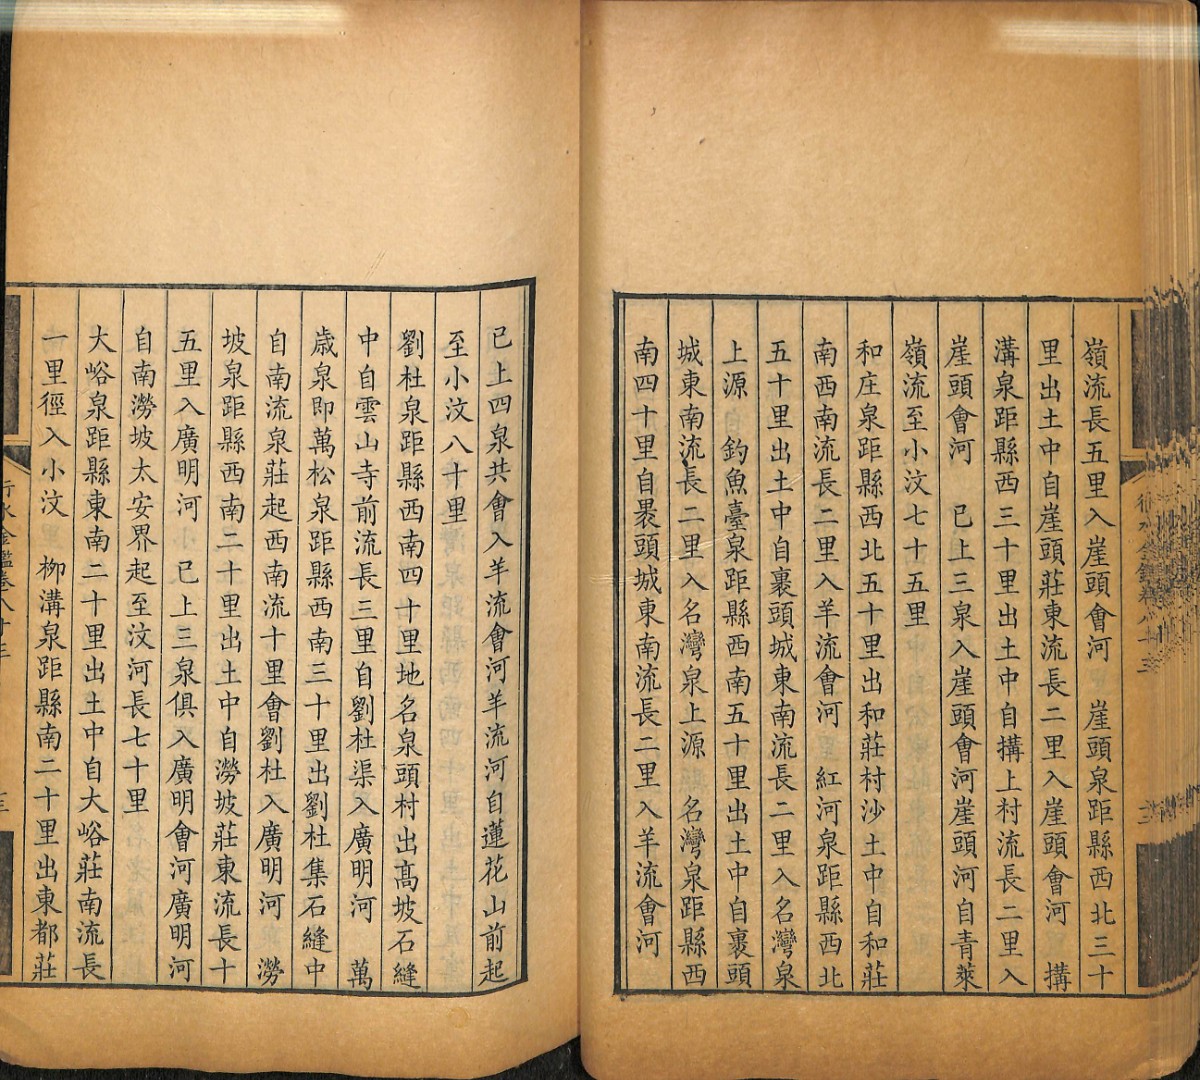 嶺流長五里入崖頭會河　崖頭泉距縣西北三十
里出土中自崖頭莊東流長二里入崖頭會河　搆
溝泉距縣西三十里出土中自搆上村流長二里入
崖頭會河　已上三泉入崖頭會河崖頭河自青萊
嶺流至小汶七十五里
和庄泉距縣西北五十里出和莊村沙土中自和莊
南西南流長二里入羊流會河　紅河泉距縣西北
五十里出土中自裏頭城東南流長二里入名灣泉
上源　釣魚臺泉距縣西南五十里出土中自裏頭
城東南流長二里入名灣泉上源　名灣泉距縣西
南四十里自褁頭城東南流長二里入羊流會河
已上四泉共會入羊流會河羊流河自蓮花山前起
至小汶八十里
劉杜泉距縣西南四十里地名泉頭村出髙坡石縫
中自雲山寺前流長三里自劉杜渠入廣明河　萬
歲泉即萬松泉距縣西南三十里出劉杜集石縫中
自南流泉莊起西南流十里會劉杜入廣明河　澇
坡泉距縣西南二十里出土中自澇坡莊東流長十
五里入廣明河　已上三泉俱入廣明會河廣明河
自南澇坡太安界起至汶河長七十里
大峪泉距縣東南二十里出土中自大峪莊南流長
一里徑入小汶　柳溝泉距縣南二十里出東都莊
行水金鑑卷八十三